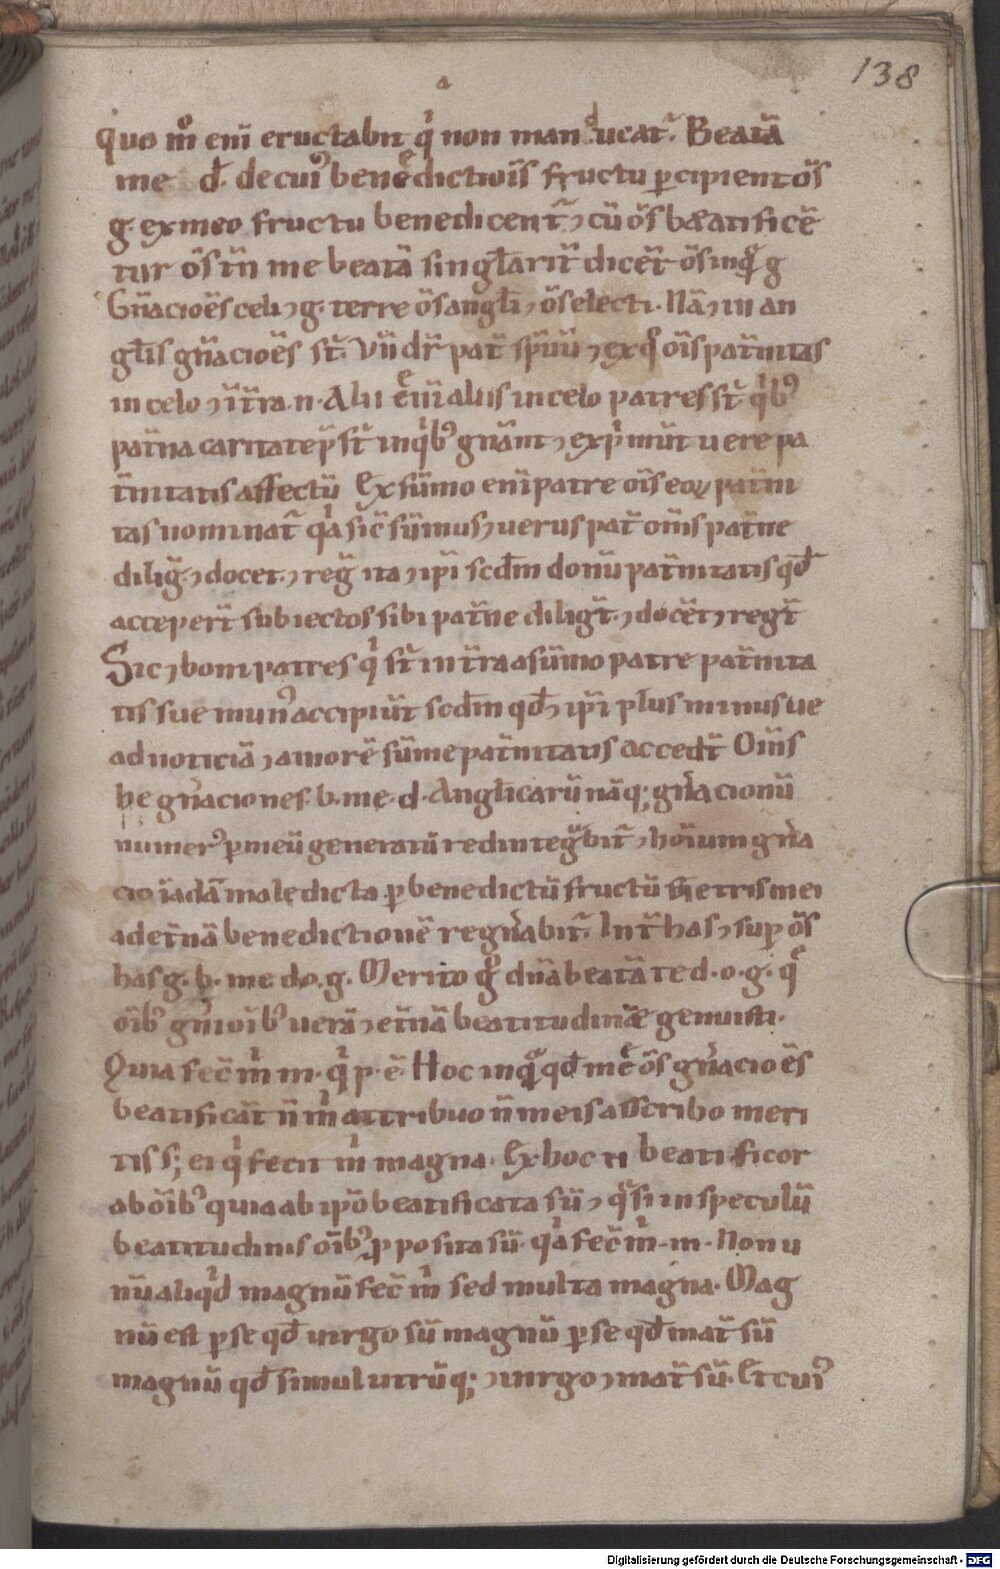 138
quo m̊ eni̅ eructabit qͥ non manducat᷑. Beata̅
me d̅. de cuiꝰ benedictio̅is fructu ꝑcipient o̅s
g. ex meo fructu benedicent᷑ ⁊ cu̅ o̅s beatifice̅
tur o̅s t̅n me beata̅ singl̅arit̅ dice̅t o̅s inqͣ g
Gn̅acio̅es celi ⁊ g. terre o̅s angl̅i ⁊ o̅s electi. Na̅ ⁊ in an
gl̅is gn̅acio̅es st̅. Vn̅ dr̅ pat̅ sp̅uu̅ ⁊ ex qͦ o̅is pat̅nitas
in celo ⁊ i̅ t̅ra. n. Alii eni̅ aliis in celo patres st̅ qͥbꝰ
pat̅na caritate p̅st̅ in qͥbꝰ gn̅ant ⁊ expͥmu̅t uere pa
t̅nitatis affectu̅ Ex su̅mo eni̅ patre o̅is eoꝝ pat̅ni
tas nominat᷑ qͣ sic̅ su̅mus ⁊ uerus pat̅ om̅is pat̅ne
dilig̅. ⁊ docet. ⁊ reg̅ ita ⁊ ip̅i scd̅m donu̅ pat̅nitatis qd̅
acceper̅t subiectos sibi pat̅ne diligt̅. ⁊ doce̅t ⁊ regt̅
Sic ⁊ boni patres qͥ st̅ in t̅ra a su̅mo patre pat̅nita
tis sue munꝰ accipiu̅t scd̅m qd̅ ⁊ ip̅i plus minusue
ad noticia̅ ⁊ amore̅ su̅me pat̅nitatis accedt̅ Om̅s
he gn̅aciones. b. me. d. Angl̅icaru̅ na̅qꝫ gn̅acionu̅
numerꝰ ꝑ meu̅ generatu̅ redintegͣbit᷑ ⁊ ho̅ium gn̅a
cio i̅ ada̅ maledicta. ꝑ benedictu̅ fructu̅ ue̅tris mei
ad et̅na̅ benedictione̅ regn̅abit᷑. Int̅ has ⁊ suꝑ o̅s
has g. b. me d. o. g. Merito gͦ dn̅a beata̅ te d. o. g. qͤ
o̅ibꝰ gn̅ioi̅bꝰ uera̅ ⁊ et̅na̅ beatitudine̅ genuisti.
Quia fec̅ mͥ m. qͥ p. e̅. Hoc inqͣ qd̅ me o̅s gn̅acio̅es
beatifica̅t n̅ mͥ attribuo n̅ meis asscribo meri
tis sꝫ ei qͥ fecit mͥ magna. Ex hoc ti beatificor
ab oi̅bꝰ quia ab ip̅o beatificata su̅ ⁊ qͣsi in speculu̅
beatitudinis oi̅bꝰ ꝓposita su̅. qͣ fec̅ mͥ. m. Non u
nu̅ aliqͥd magnu̅ fec̅ mͥ sed multa magna. Mag
nu̅ est ꝑ se qd̅ uirgo su̅ magnu̅ ꝑ se qd̅ mat̅ su̅
magnu̅ qd̅ simul utru̅qꝫ ⁊ uirgo ⁊ mat̅ su̅. Et cuiꝰ
Digitalisierung gefördert durch die Deutsche Forschungsgemeinschaft - DFG